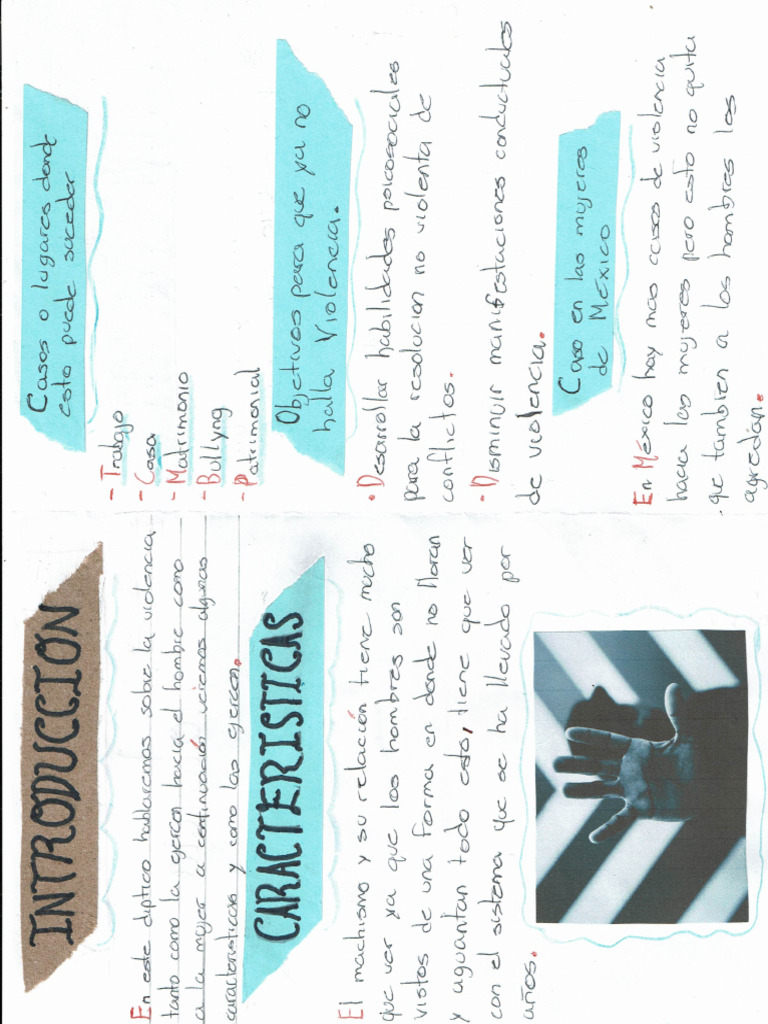 INTRODUCCION
En este diptico hablaremos sobre la violencia
tanto como la ejercen hacia el hombre como
a la mujer a continuación veremos algunas
caracteristicas y como las ejercen.
CARACTERISTICAS
El machismo y su relación tiene mucho
que ver ya que los hombres son
vistos de una forma en donde no lloran
y aguantan todo esto, tiene que ver
con el sistema que se ha llevado por
años.
Casos o lugares donde
esto puede suceder
- Trabajo
- Casa
- Matrimonio
- Bullyng
- Patrimonial
Objetivos para que ya no
halla Violencia.
• Desarrollar habilidades psicosociales
para la resolucion no violenta de
conflictos.
• Disminuir manifestaciones conductuales
de violencia.
Caso en las mujeres
de México
En México hay mas casos de violencia
hacia las mujeres pero esto no quita
que tambien a los hombres los
agredan.